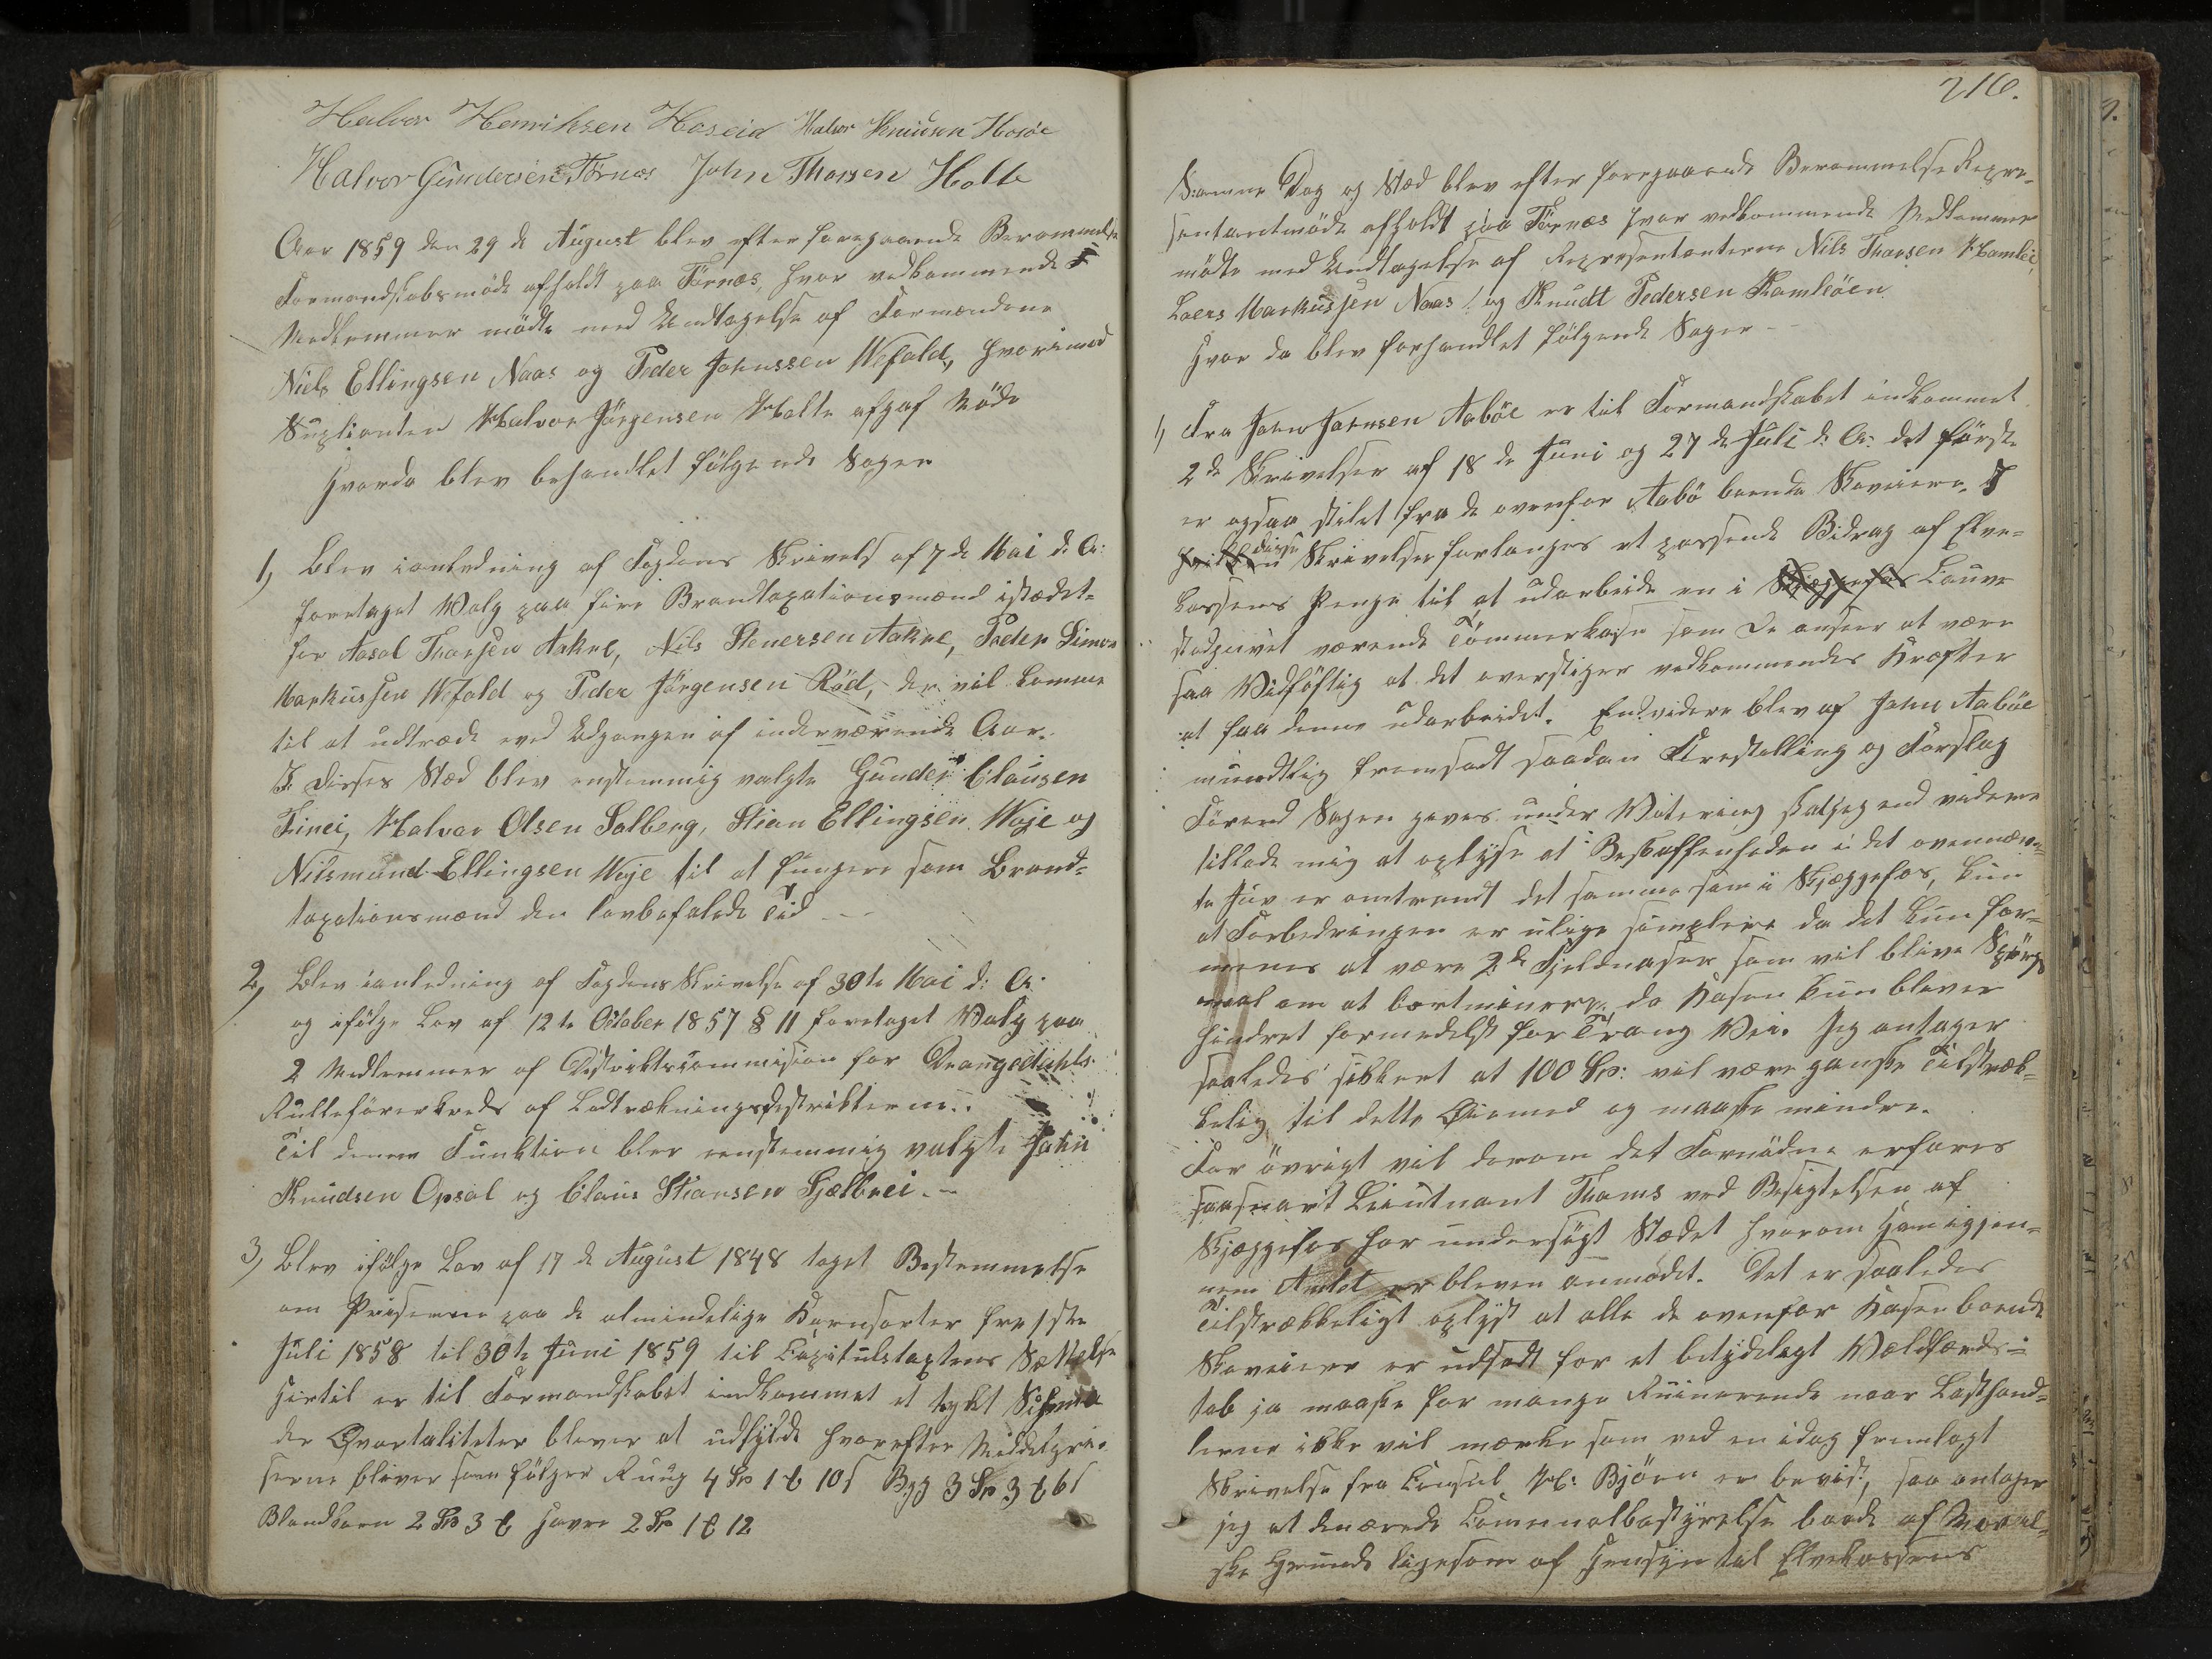 Halvor Henriksen Haseid Halvor Knudsen Hosöe
Halvor Gundersen Törnæs John Thorsen Holte
Aar 1859 den 29 de August blev efter foregaaende Berammelse
Formandskabsmöde afholdt paa Törnæs, hvor vedkommende
Medlemmer mödte med Undtagelse af Formændene
Niels Ellingsen Naas og Peder Johnssen Wefald, hvorimod
Suplianten Halvor Jörgensen Holte afgaf Möde
Hvorda blev behandlet fölgende Sager
1, Blev ianledning af Fogdens Skrivelse af 7 de Mai d. A:
foretaget Valg paa fire Brandtaxationsmænd istædet-
for Aasol Thorsen Aakre, Nils Stenersen Aakre, Peder Simon
Markussen Wefald og Peder Jörgensen Röd, der vil komme
til at udtræde ved Udgangen af indeværende Aar.
I Disses Sted blev enstemmig valgte Gunder Clausen
Tinei, Halvor Olsen Solberg, Stian Ellingsen Woje og
Nilsmund Ellingsen Woje til at fungere som Brand-
taxationsmænd den lovbefalede Tid ---
2, Blev ianledning af Fogdens Skrivelse af 30te Mai d: A:
og ifölge Lov af 12te October 1857 § 11 foretaget Valg paa
2 Medlemmer af Districtscommision for Drangedahls
Rulleförerkreds af Lodtrækningsdistrikterne..
Til denne Funktion blev eenstemmig valgte John
Knudsen Opsal og Claus Stiansen Gjælbrei. -
3, Blev ifölge Lov af 17 de August 1848 taget Bestemmelse
om Priserne paa de almindelige Kornsorter fra 1ste
Juli 1858 til 30te Juni 1859 til Capitulstaxtens Sættelse
Hertil er til Formandskabet indkommet et trykt Schema
der Qvartaliteter blever at udfylde hvorefter Middelpri-
serne bliver som fölger Ruug 4 Sp 1 t 10 s Byg 3 Sp 3 t 6 s
Blandkorn 2 Sp 3 t Havre 2 Sp 1 t 12
216.
Samme Dag og Stæd blev efter foregaaende Berammelse Repre-
sentantmöde afholdt paa Törnæs hvor vedkommende Medlemmer
mödte med Undtagelse af Representanterne Nils Thorsen Hamlei,
Laers Markussen Naas! og Knudt Pedersen Kamleöen.
Hvor da blev forhandlet fölgende Sager --
1, Fra John Johnsen Aaböe er til Formandskabet indkommet
2de Skrivelser af 18 de Juni og 27 de Juli d. A: det förste
er ogsaa stilet fra de ovenfor Aabö boende Skoveiere. I
hvilken disse Skrivelser forlanges et passende Bidrag af Elve-
kassens Penge til at udarbeide en i Skjæggefos Lauve-
stadjuvet værende Tömmerkase som De anseer at være
saa Vidlöftig at det overstiger vedkommendes Kræfter
at faa denne udarbeidet. Endvidere blev af John Aaböe
mundtlig fremsadt saadan Forestilling og Forslag
Förend Sagen geves under Votering skal jeg end videre
tillade mig at oplyse at Beskaffenheden i det ovennævn-
te Juv er omtrendt det samme som i Skjæggefos, kun
at Forbedringen er ulige simplere da det kun for-
menes at være 2de Fjeldnaser som vil blive Spörgs
maal om at bortminere, da Kasen kun blever
hindret formedelst for Trang Vei. Jeg antager
saaledes sikkert at 100 Sp: vil være ganske Tilstræk-
kelig til dette Öiemed og maaske mindre.
For övrigt vil derom det Fornödne erfares
saasnart Lieutnant Thams ved Besigtelsen af
Skjæggefos har undersögt Stædet hvorom Ham igjen-
nem Amtet er bleven anmodet. Det er saaledes
Tilstrækkeligt oplyst at alle de ovenfor Kasen boende
Skoveiere er udsadt for et betydelegt Velfærds-
tab ja maaske for mange Ruinerende naar Lasthand-
lerne ikke vil mærke som ved en idag fremlagt
Skrivelse fra Consul H: Björn er bevist, saa antager
jeg at denærede Comunalbestyrelse baade af Moral-
ske Grunde ligesom af Hensyn til Elvekassens